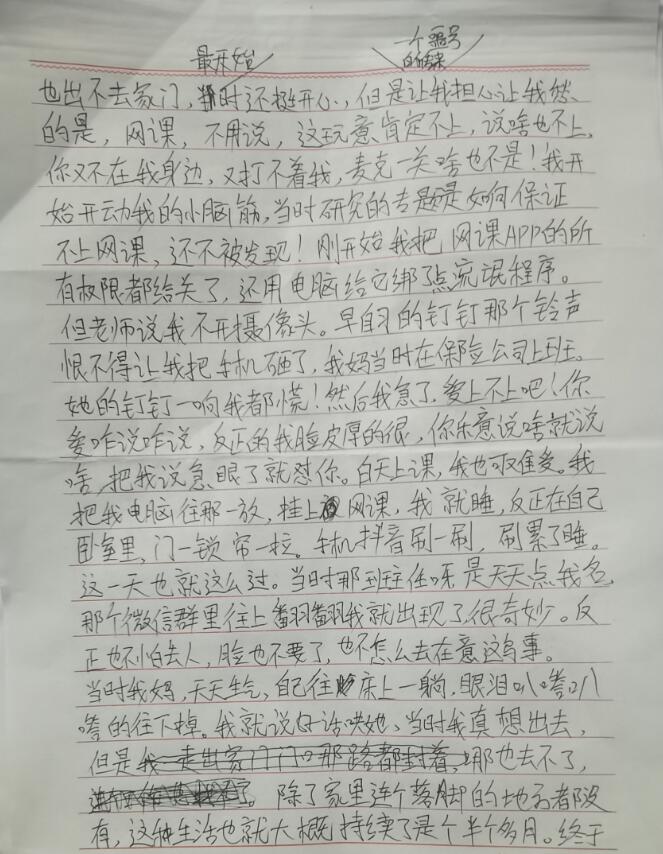 最开始
一个番号
的信来
也出不去家门，当时还挺开心，但是让我担心让我愁
的是，网课，不用说，这玩意肯定不上，说啥也不上，
你又不在我身边，又打不着我，麦克一关啥也不是！我开
始开动我的小脑筋，当时研究的专题是如何保证
不上网课，还不被发现！刚开始我把网课APP的所
有权限都给关了，还用电脑给它绑了点流氓程序。
但老师说我不开摄像头。早自习的钉钉那个铃声
恨不得让我把手机砸了，我妈当时在保险公司上班。
她的钉钉一响我都慌！然后我急了，爱上不上吧！你
爱咋说咋说，反正的我脸皮厚的很，你乐意说啥就说
啥，把我说急眼了就怼你。白天上课，我也可准爱。我
把我电脑往那一放，挂上网课，我就睡，反正在自己
卧室里，门一锁帘一拉。手机抖音刷一刷，刷累了睡。
这一天也就这么过。当时那班主任呀是天天点我名，
那个微信群里往上翻翻我就出现了，很奇妙。反
正也不怕丢人，脸也不要了，也不怎么去在意这码事。
当时我妈，天天生气，自己往床上一躺，眼泪叭嗒叭
嗒的往下掉。我就说好话哄她、当时我真想出去，
但是我一走出家门门口那路都封着，哪也去不了，
除了家里连个落脚的地方都没
有，这种生活也就大概持续了是个半个多月。终于